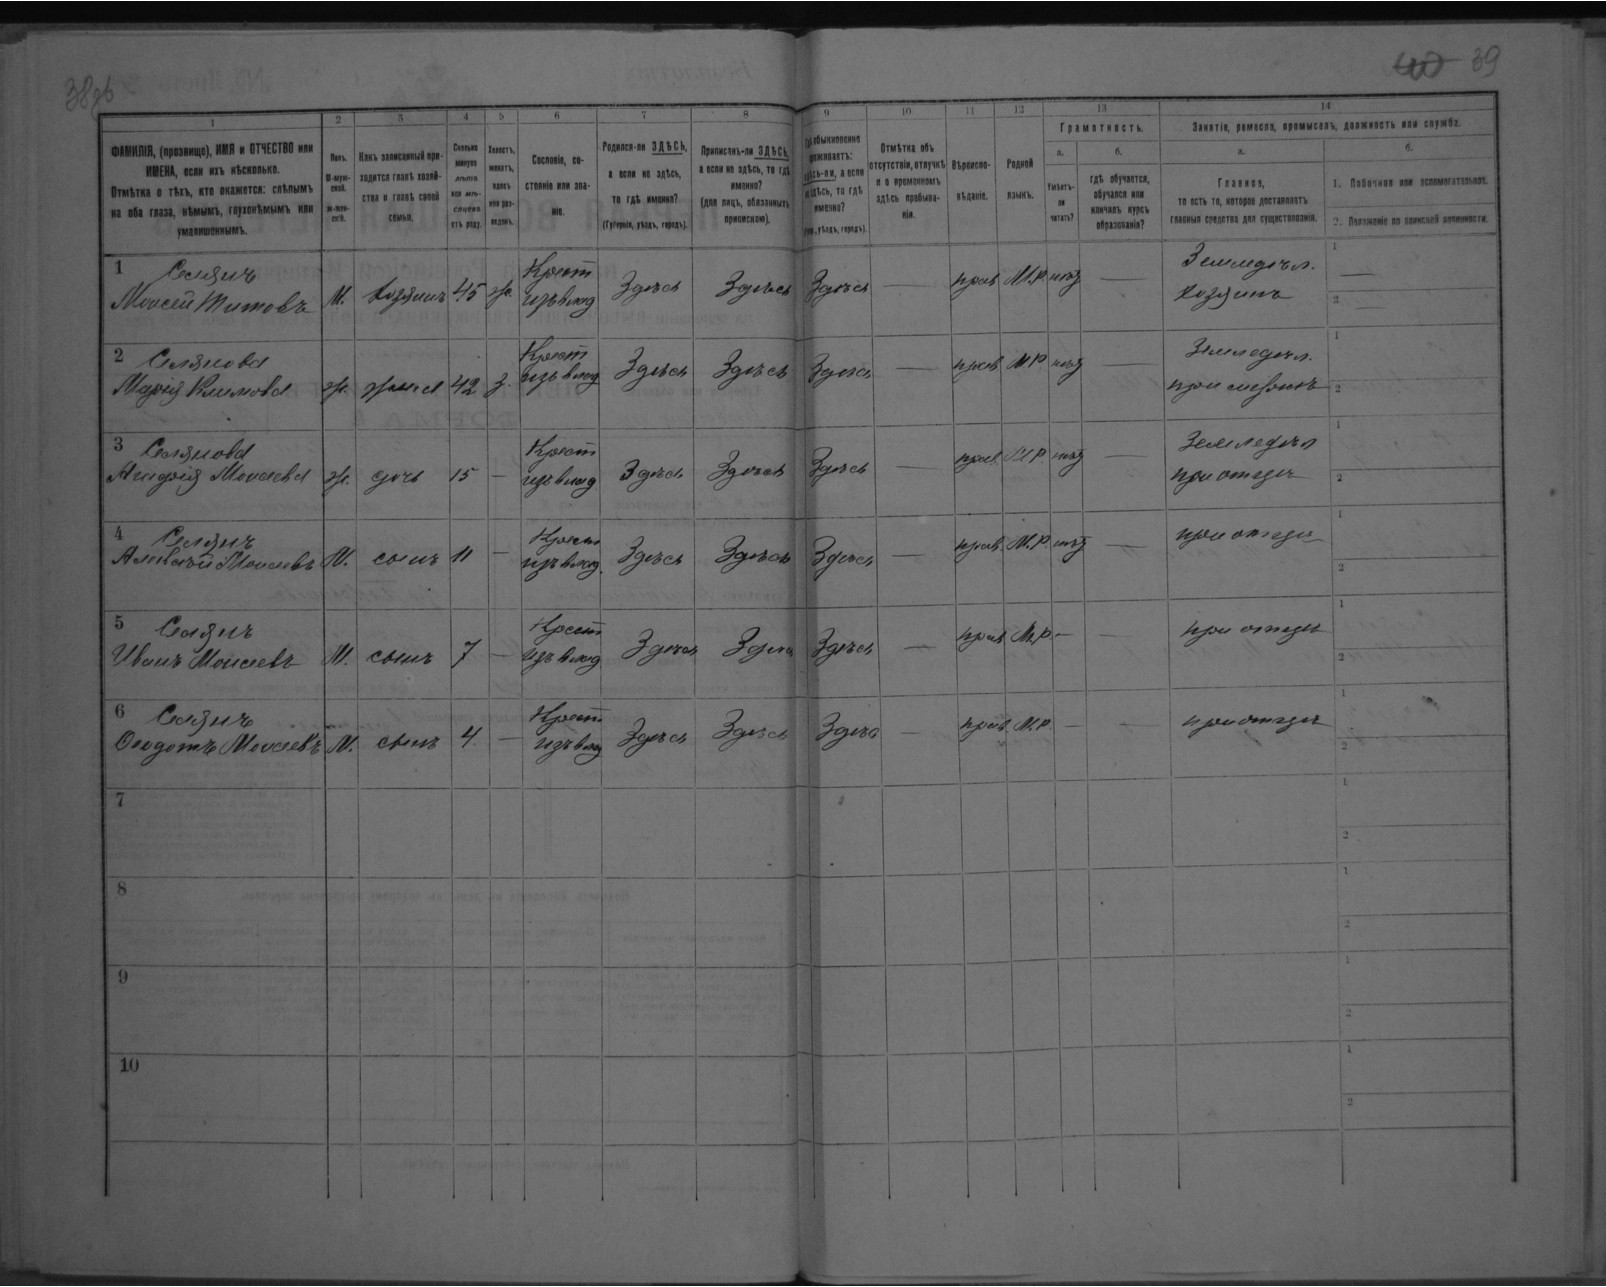 38об
39
1
2
3
4
5
6
7
8
9
10
11
12
13
14
ФАМИЛІЯ, (прозвище), ИМЯ и ОТЧЕСТВО или
ИМЕНА, если ихъ нѣсколько.
Отмѣтка о тѣхъ, кто окажется: слѣпымъ
на оба глаза, нѣмымъ, глухонѣмымъ или
умалишеннымъ.
Полъ.
М-муж-
ской.
Ж-жен-
скій.
Какъ записанный при-
ходится главѣ хозяй-
ства и главѣ своей
семьи.
Сколько
минуло
лѣтъ
или мѣ-
сяцевъ
отъ роду.
Холостъ,
женатъ,
вдовъ
или раз-
веденъ.
Сословіе, со-
стояніе или зва-
ніе.
Родился-ли ЗДѢСЬ,
а если не здѣсь,
то гдѣ именно?
(Губернія, уѣздъ, городъ).
Приписанъ-ли ЗДѢСЬ,
а если не здѣсь, то гдѣ
именно?
(для лицъ, обязанныхъ
припискою).
Гдѣ обыкновенно
проживаетъ:
здѣсь-ли, а если
не здѣсь, то гдѣ
именно?
(Губ., уѣздъ, городъ).
Отмѣтка объ
отсутствіи, отлучкѣ
и о временномъ
здѣсь пребыва-
ніи.
Вѣроиспо-
вѣданіе.
Родной
языкъ.
Грамотность.
а.
Умѣетъ-
ли
читать?
б.
гдѣ обучается,
обучался или
кончилъ курсъ
образованія?
Занятіе, ремесло, промыселъ, должность или служба.
а.
Главное,
то есть то, которое доставляетъ
главныя средства для существованія.
б.
1. Побочное или вспомогательное.
2. Положеніе по воинской повинности.
1
Селянъ Крест Земледѣл.
Моисей Титовъ М. хозяинъ 45 ж. изъ влад Здѣсь Здѣсь Здѣсь — прав М.Р. нѣт — хозяинъ
1 —
2 —
2
Селянова Крест Земледѣл.
Марія Климова ж. жена 42 з. изъ влад Здѣсь Здѣсь Здѣсь — прав М.Р. нѣт —
1
2
3
Селянова Крест Земледѣл
Моисеева ж. дочь 15 — изъ влад Здѣсь Здѣсь Здѣсь прав М.Р. нѣт — при отцѣ
1
2
4
Селянъ Крест при отцѣ
Алексѣй Моисеевъ М. сынъ 11 — изъ влад. Здѣсь Здѣсь Здѣсь — прав М.Р. нѣт —
1
2
5
Селянъ Крест при отцѣ
Иванъ Моисеевъ М. сынъ 7 — изъ влад Здѣсь Здѣсь Здѣсь — прав М.Р. — —
1
2
6
Селянъ Крест при отцѣ
Ѳеодотъ Моисеевъ М. сынъ 4 — изъ влад Здѣсь Здѣсь Здѣсь — прав М.Р. — —
1
2
7
1
2
8
1
2
9
1
2
10
1
2